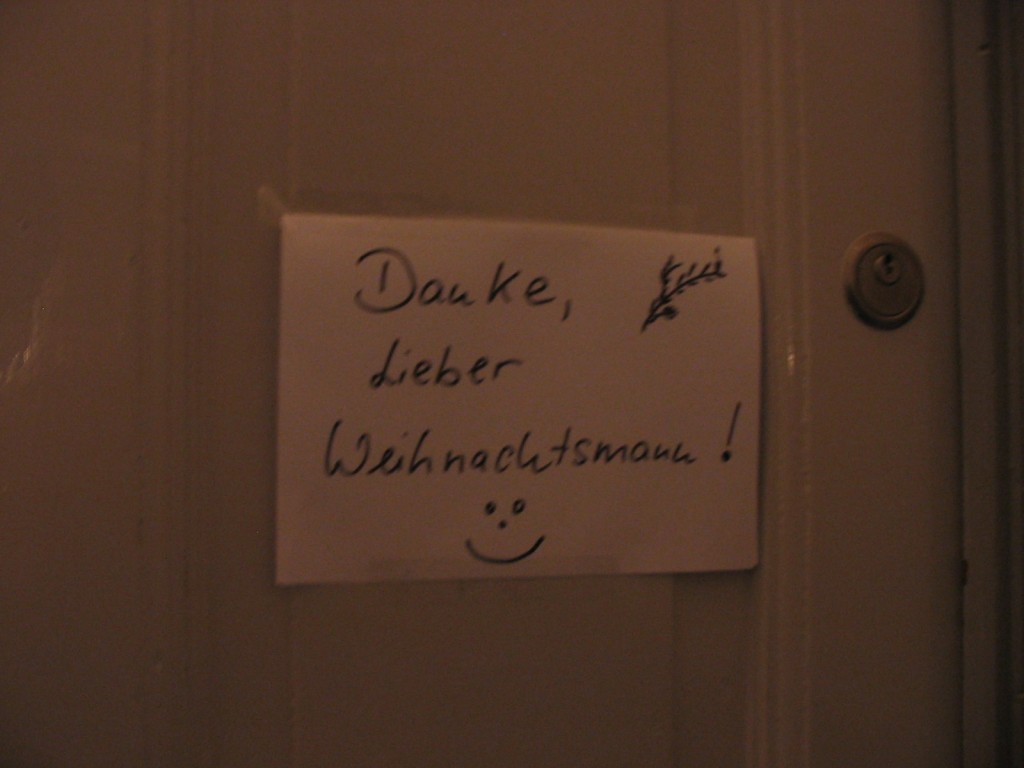 Danke,
Lieber
Weihnachtsmann!